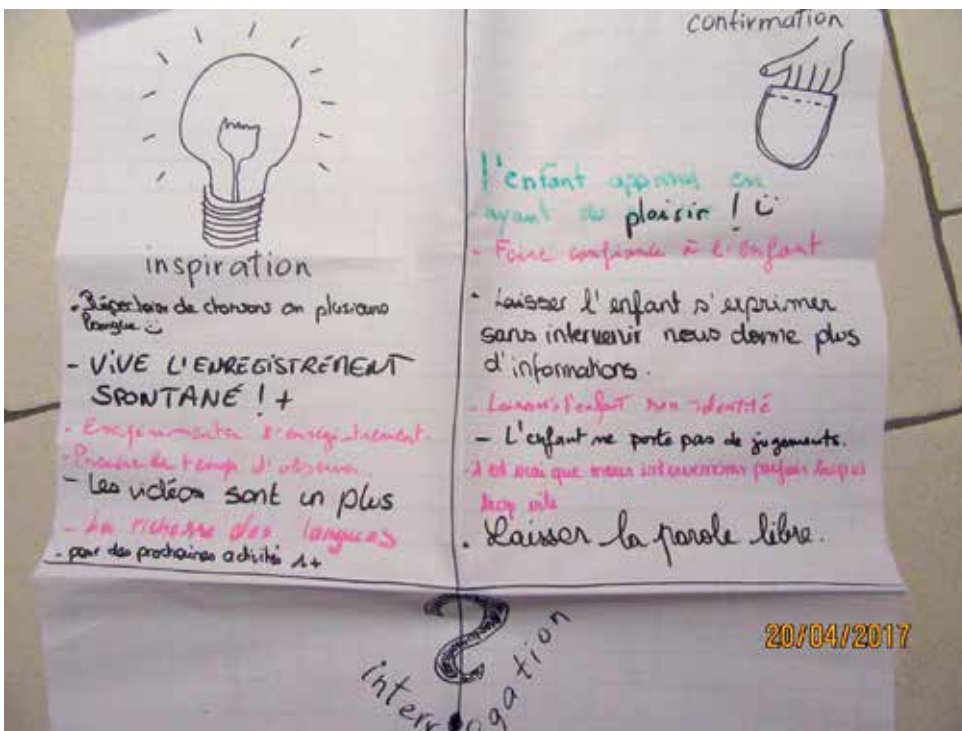 inspiration
- Répertoire de chansons en plusieurs
langue
- VIVE L'ENREGISTREMENT
SPONTANÉ ! +
- Expérimenter l'enregistrement.
- Prendre le temps d'observer
- Les vidéos sont un plus
- La richesse des langues
- pour des prochaines activités 1+
confirmation
l'enfant apprend en
ayant du plaisir !
- Faire confiance à l'enfant
- Laisser l'enfant s'exprimer
sans intervenir nous donne plus
d'informations.
- l'enfant son identité
- L'enfant ne porte pas de jugements.
- il est vrai que nous intervenons parfois
trop vite
. Laisser la parole libre.
?
interrogation
20/04/2017